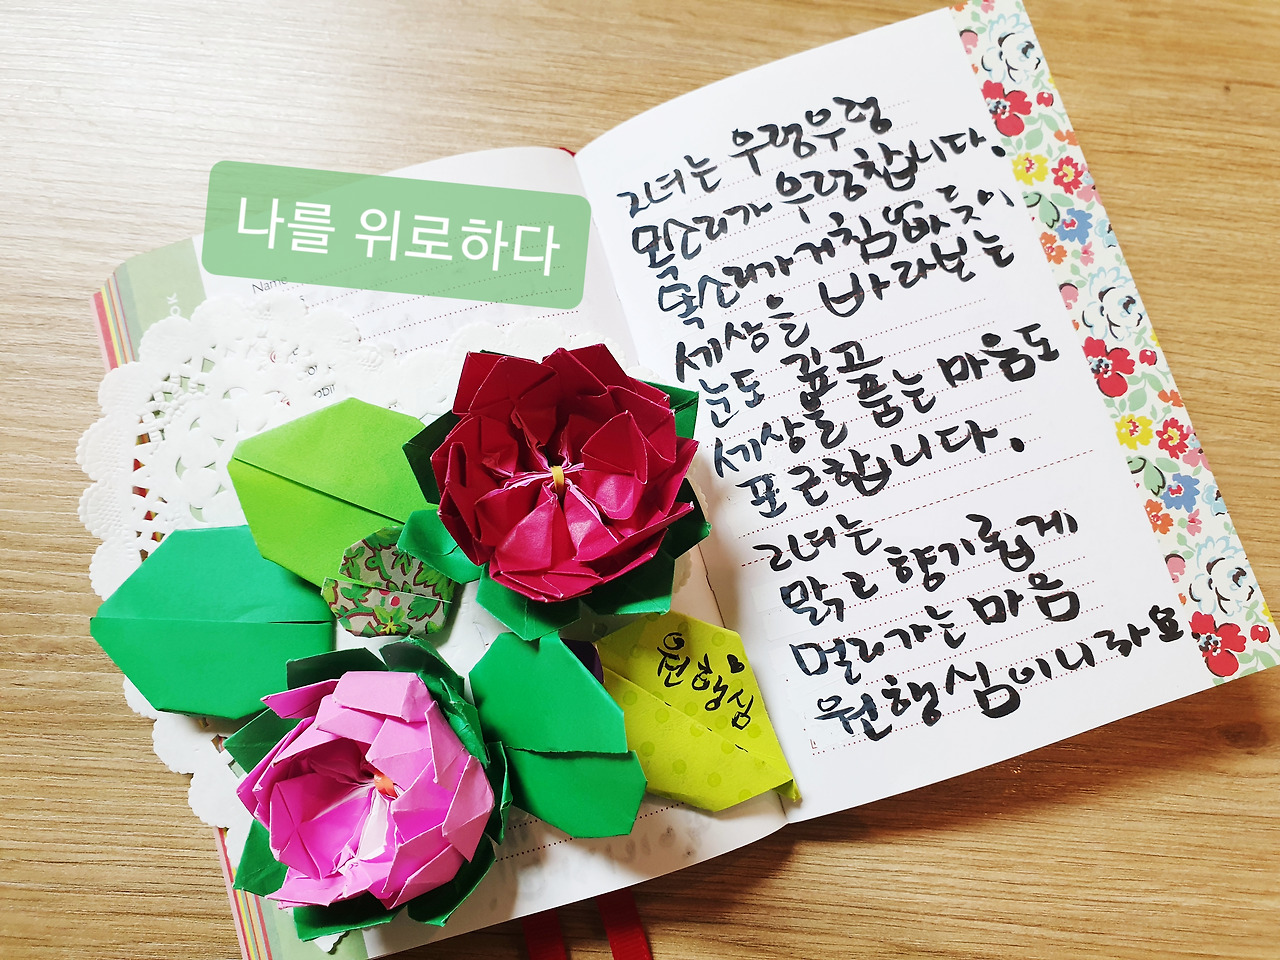 나를 위로하다
Name
그녀는 우렁우렁
목소리가 우렁찹니다.
목소리가 거침없듯이
세상을 바라보는
눈도 깊고
세상을 품는 마음도
포근합니다.
그녀는
맑고 향기롭게
멀리가는 마음
원행심이니라요
원행심